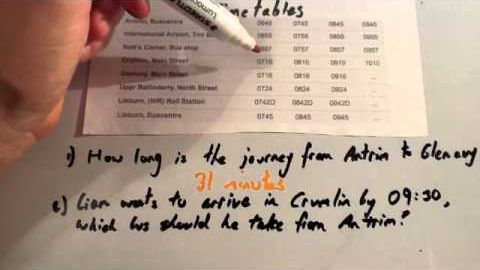 Timetables
Antrim, Buscentre 0645 0745 0845 0945
International Airport, Tml B 0655 0755 0855 0955
Nutt's Corner, Bus stop 0657 0757 0857 0957
Crumlin, Main Street 0715 0815 0915 1010
Glenavy, Main Street 0716 0816 0916 ...
Uppr Ballinderry, North Street 0724 0824 0924 ...
Lisburn, (NIR) Rail Station 0742D 0842D 0942D ...
Lisburn, Buscentre 0745 0845 0945 ...
1) How long is the journey from Antrim to Glenavy
31 minutes
2) Liam wants to arrive in Crumlin by 09:30,
which bus should he take from Antrim?